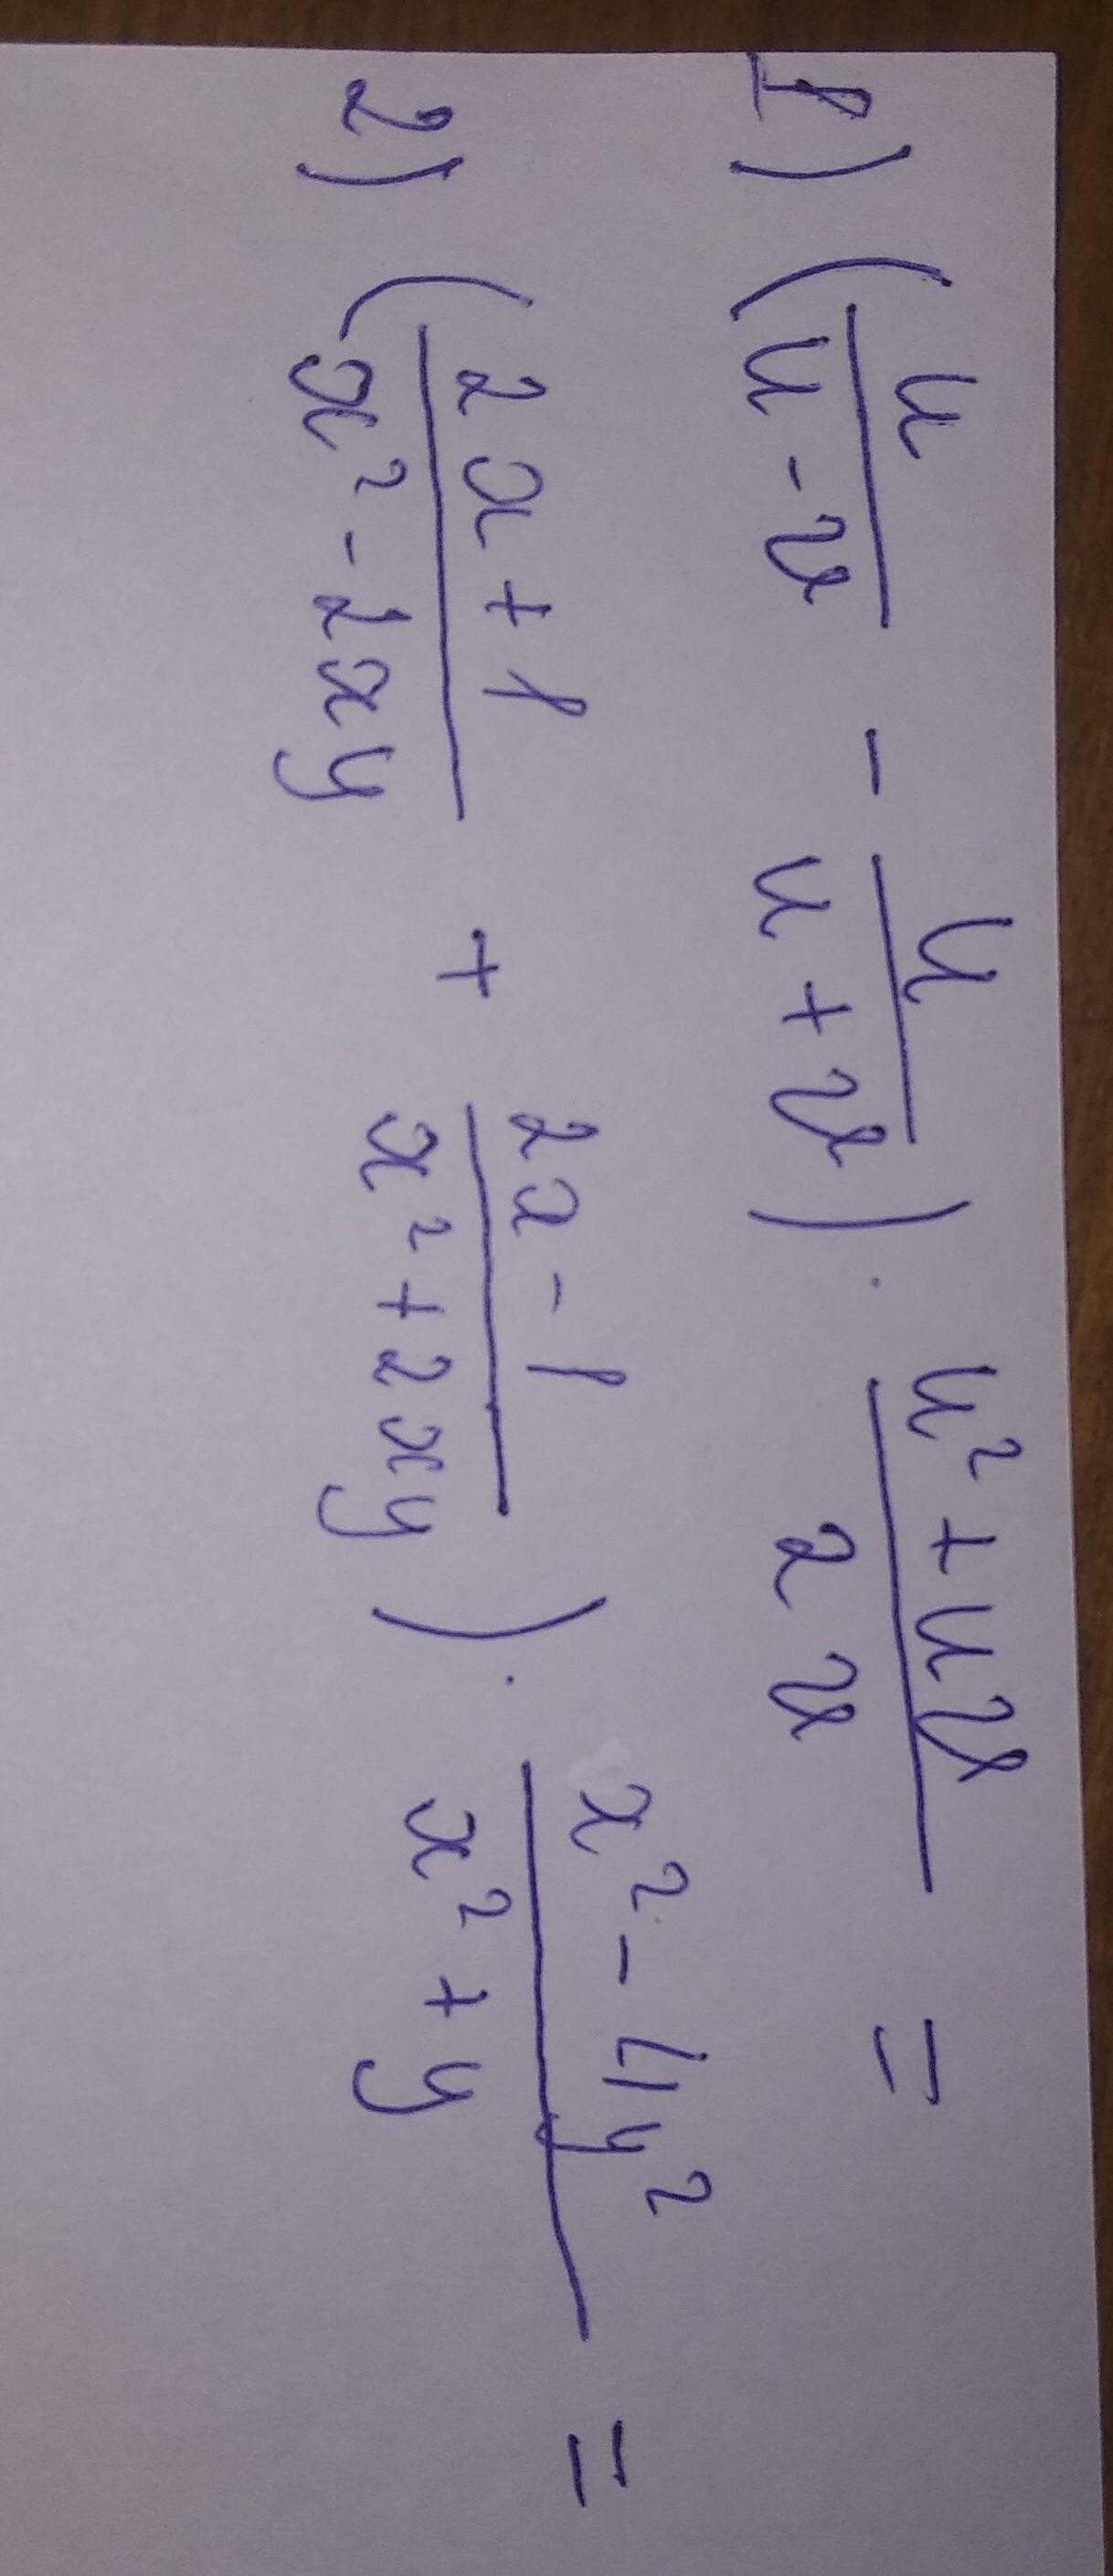 1) (u/(u-v) - u/(u+v)) · (u²+uv)/(2v) =
2) ((2x+1)/(x²-2xy) + (2x-1)/(x²+2xy)) · (x²-4y²)/(x²+y) =